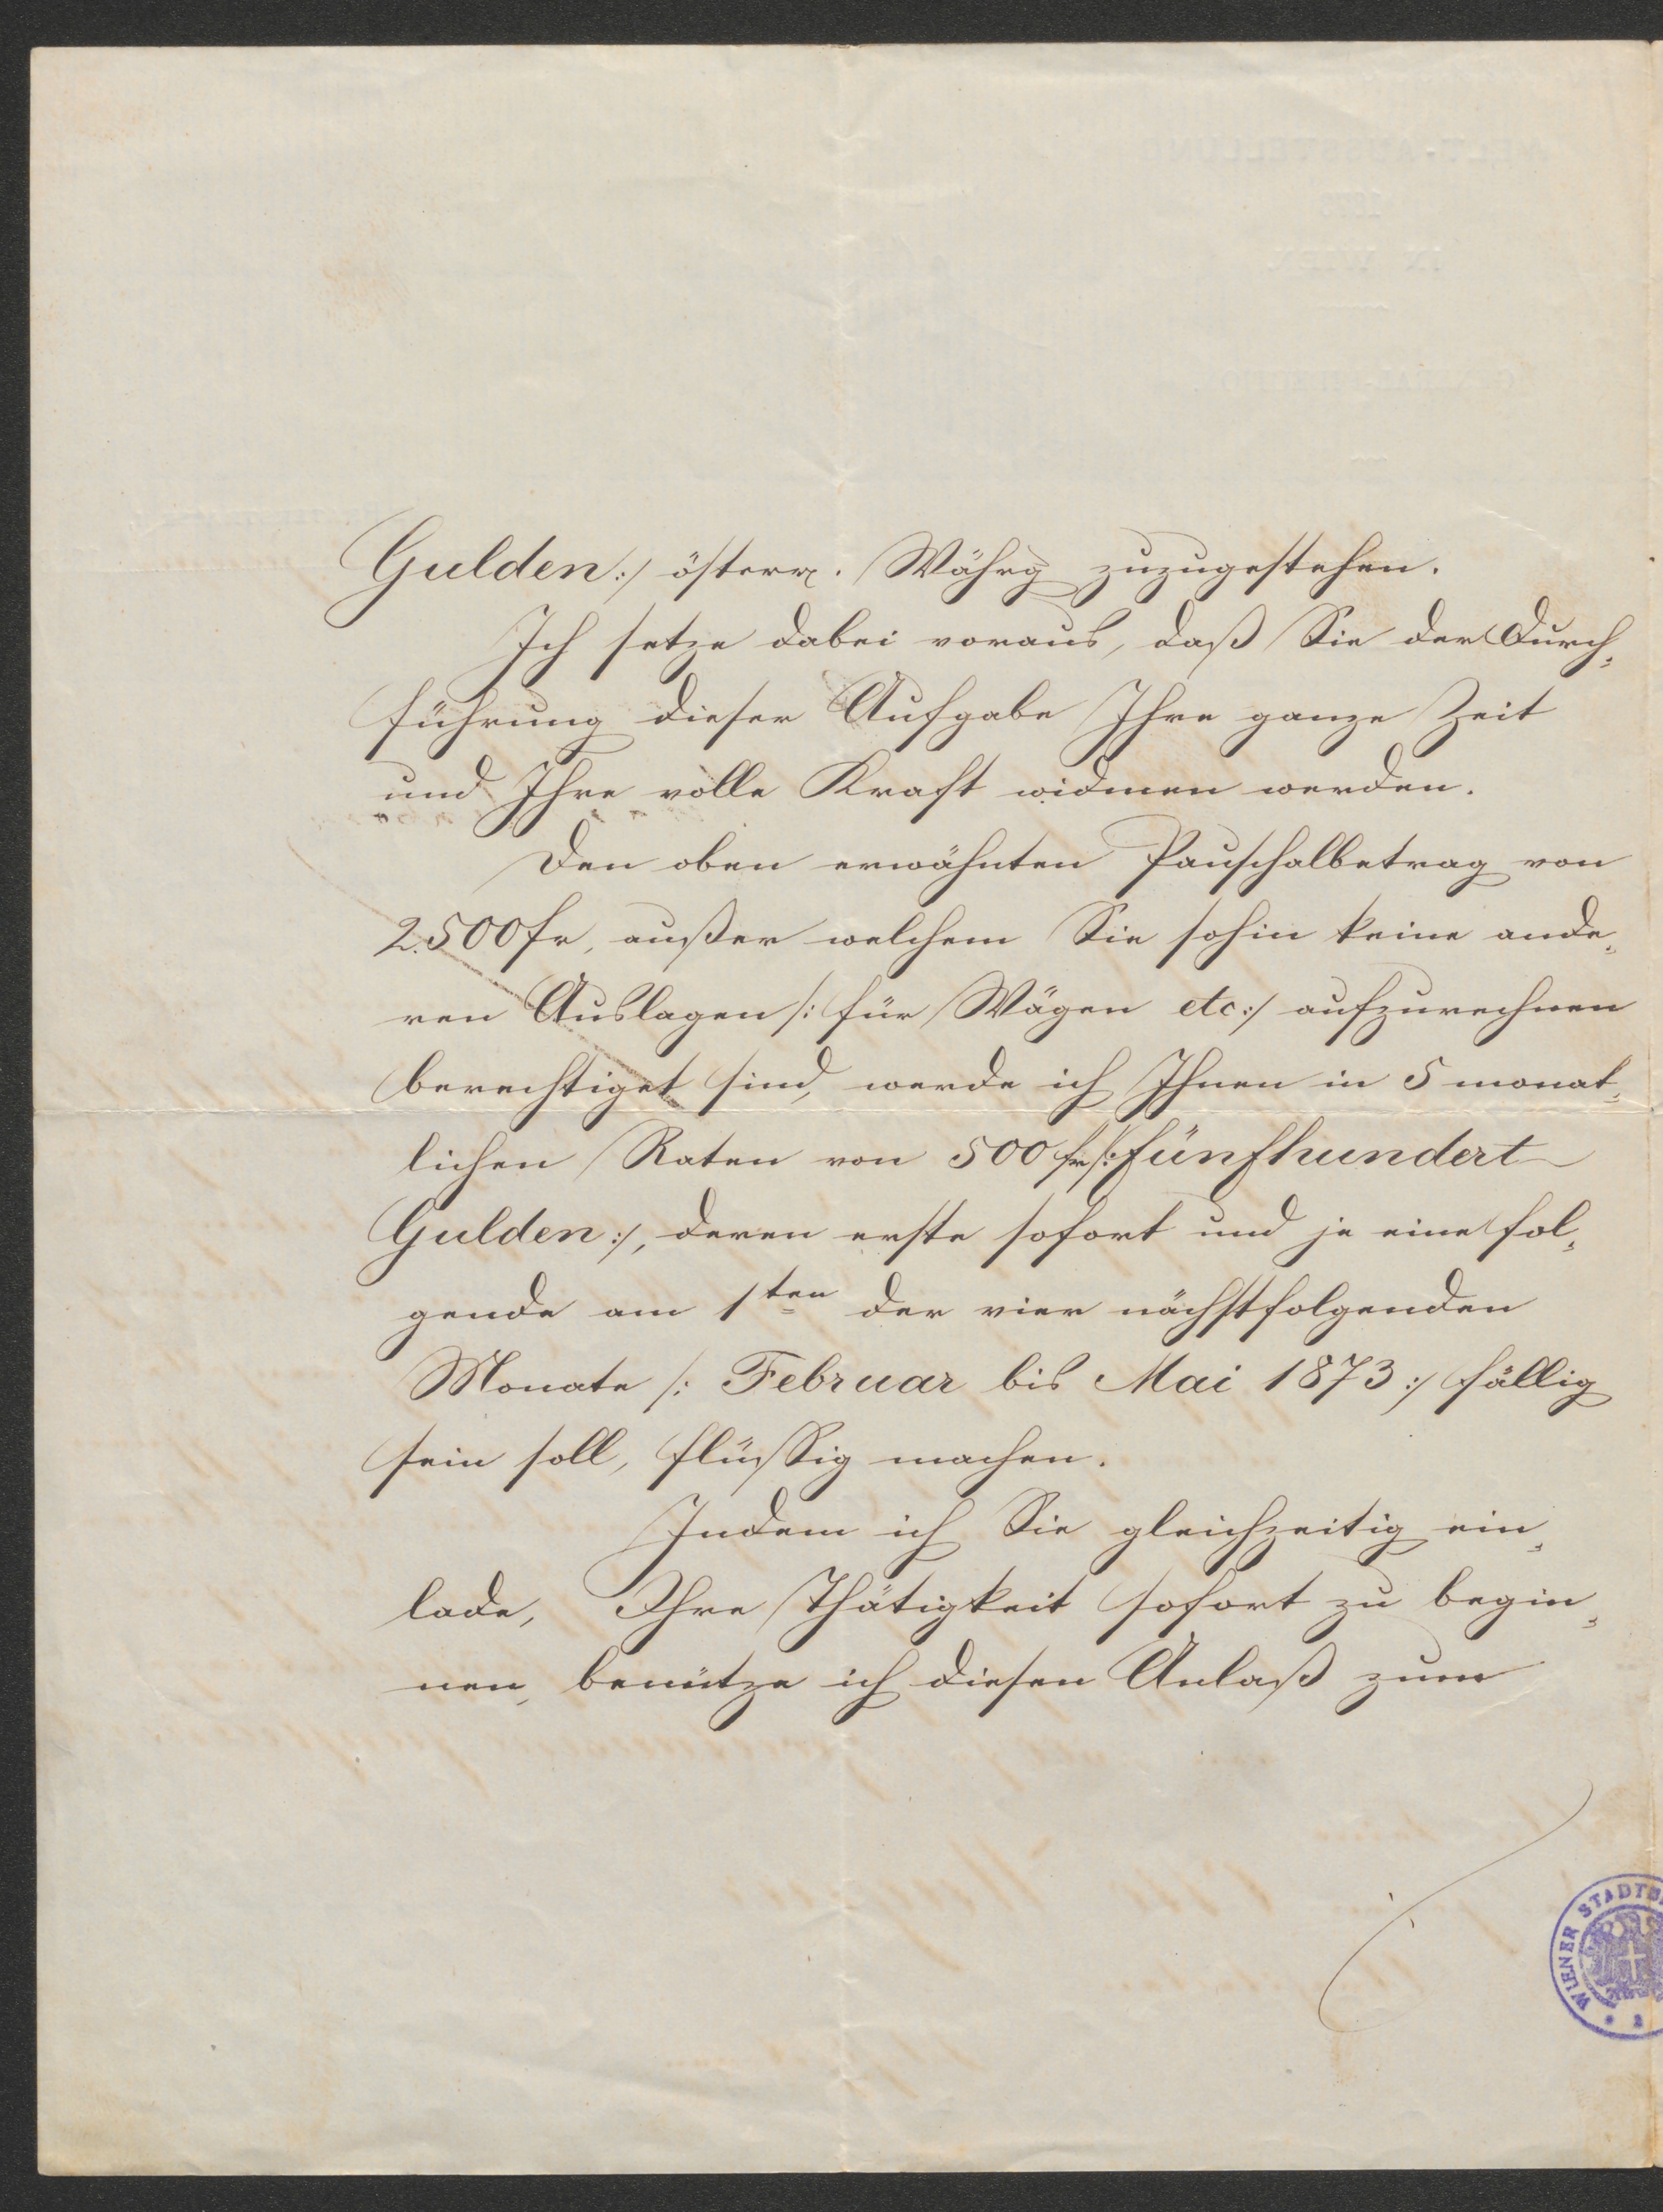 Gulden :/ österr. Währg zuzugestehen.
Ich setze dabei voraus, daß Sie der Durch-
führung dieser Aufgabe Ihre ganze Zeit
und Ihre volle Kraft widmen werden.
Den oben erwähnten Pauschalbetrag von
2.500 fr, außer welchem Sie sohin keine ande-
ren Auslagen /: für Wägen etc :/ aufzurechnen
berechtiget sind, werde ich Ihnen in 5 monat-
lichen Raten von 500 fr /: fünfhundert
Gulden :/, deren erste sofort und je eine fol-
gende am 1ten der vier nächstfolgenden
Monate /: Februar bis Mai 1873 :/ fällig
sein soll, flüssig machen.
Indem ich Sie gleichzeitig ein-
lade, Ihre Thätigkeit sofort zu begin-
nen, benütze ich diesen Anlaß zum
WIENER